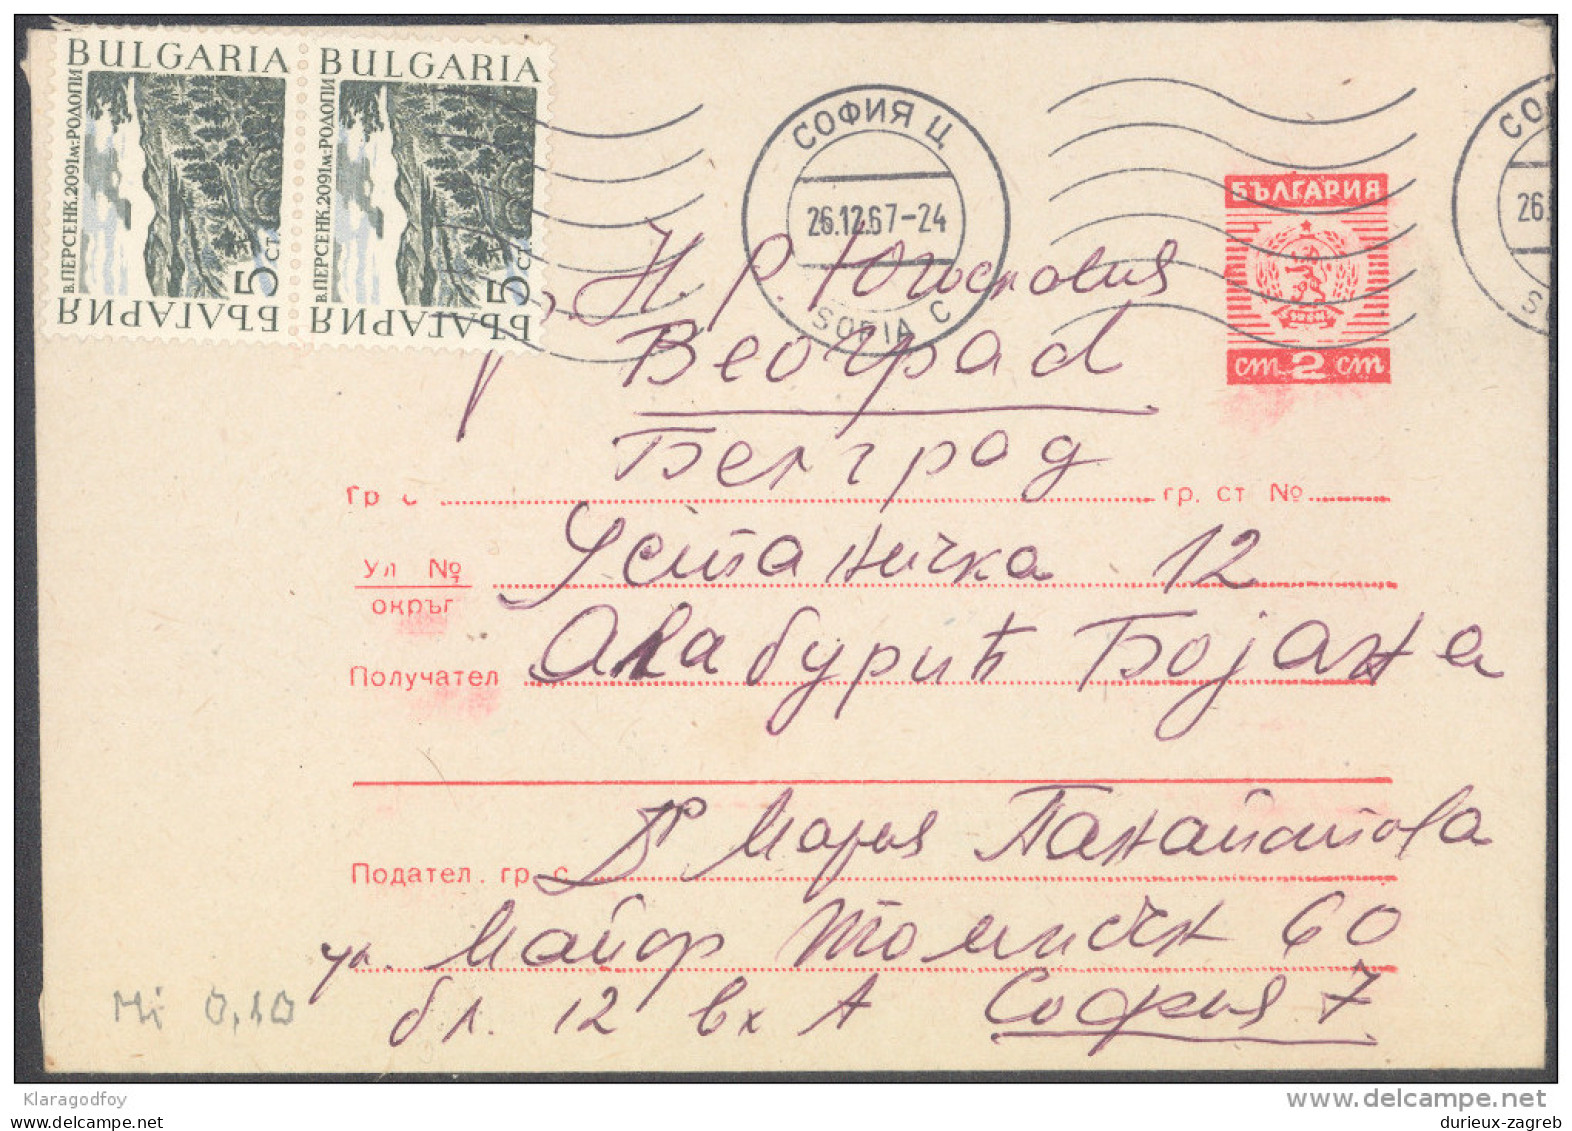 BULGARIA BULGARIA
В.ПЕРСЕНК.2091м:РОДОПИ В.ПЕРСЕНК.2091м:РОДОПИ
5 СТ. 5 СТ.
БЪЛГАРИЯ БЪЛГАРИЯ
СОФИЯ Ц
26.12.67-24
SOFIA C
СО
26.
S
БЪЛГАРИЯ
ст 2 ст
Н. Р. Югославия
Београд
Белград
Гр с гр. ст №
Ул № Устаничка 12
окръг
Получател Алабурић Бојана
Подател. гр. с. Д-р Мария Панайотова
ул. Майор Томпсън 60
бл. 12 вх А София 7
Mi 0,10
Klaragodfoy
www.delcampe.net
durieux-zagreb